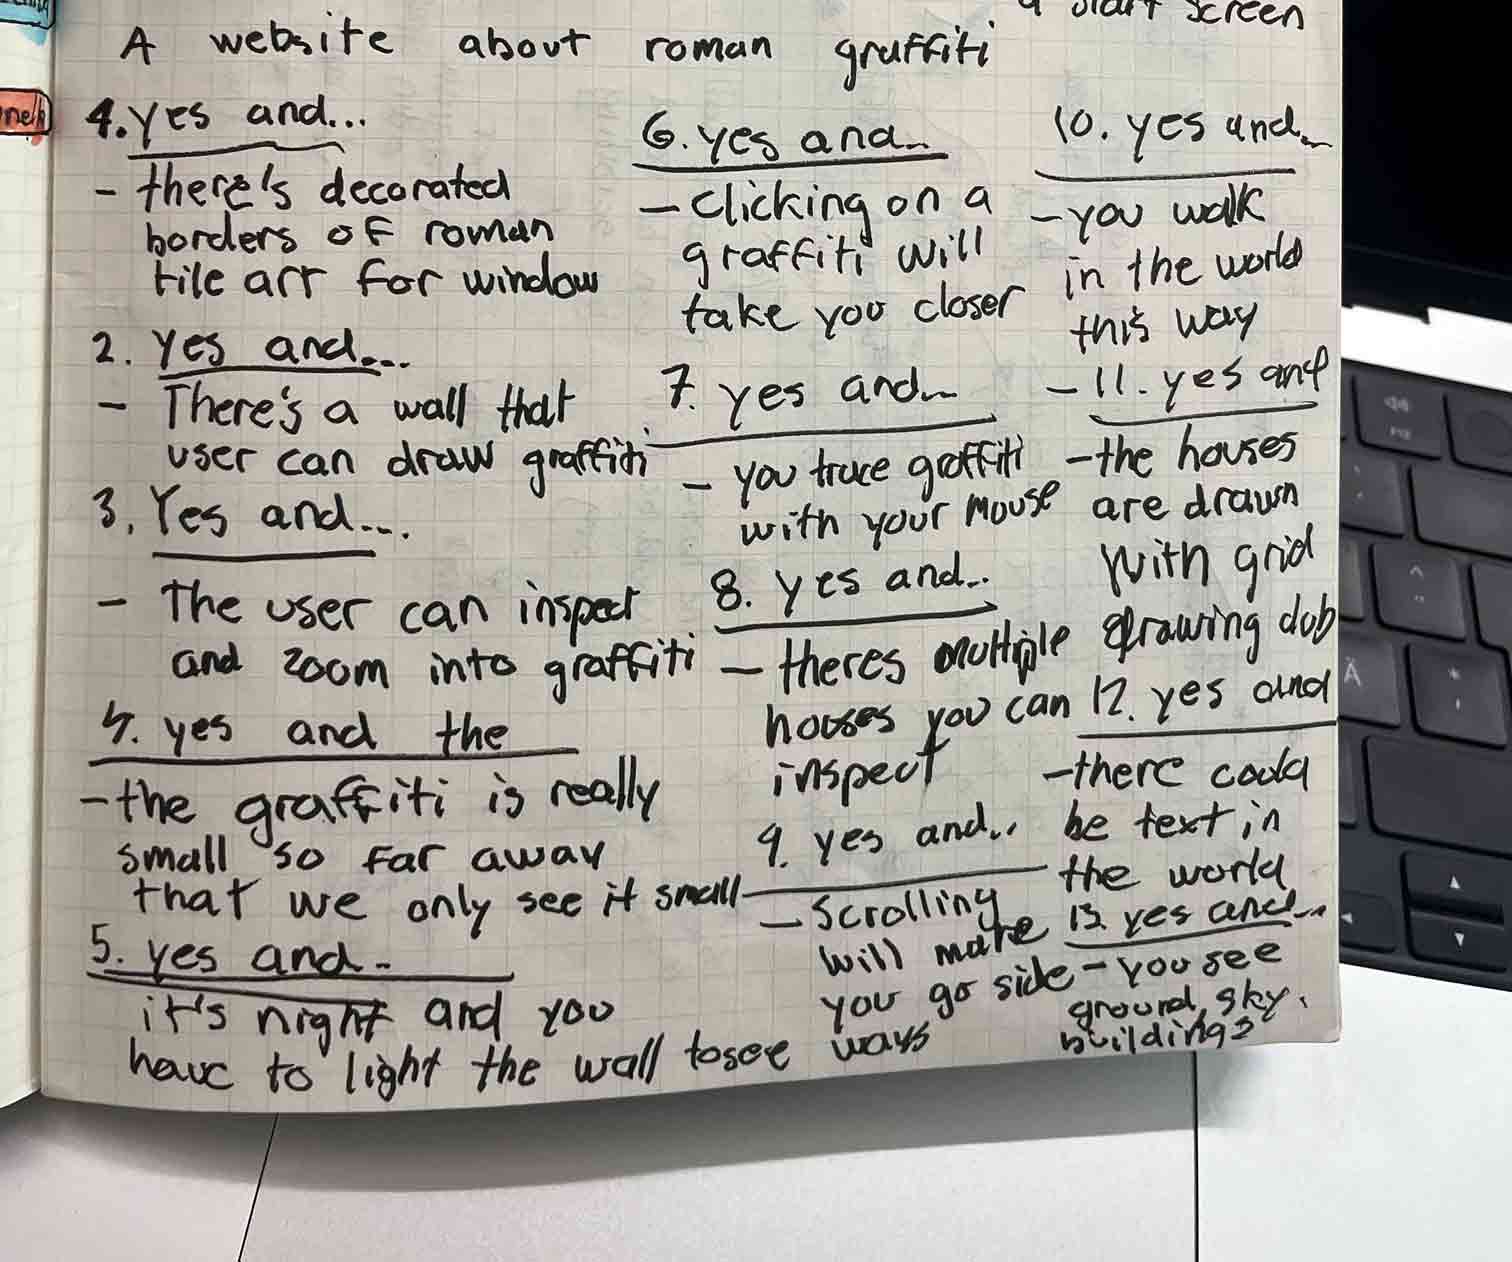 start screen
A website about roman graffiti
1. yes and...
- there's decorated
borders of roman
tile art for window
2. yes and...
- There's a wall that
user can draw graffiti
3. Yes and...
- The user can inspect
and zoom into graffiti
4. yes and the
- the graffiti is really
small so far away
that we only see it small
5. yes and..
it's night and you
have to light the wall to see
6. yes and..
- clicking on a
graffiti will
take you closer
7. yes and..
- you trace graffiti
with your mouse
8. yes and..
- theres multiple
houses you can
inspect
9. yes and..
- Scrolling
will make
you go side
ways
10. yes and..
- you walk
in the world
this way
- 11. yes and
- the houses
are drawn
with grid
drawing
12. yes and
- there could
be text in
the world
13. yes and...
- you see
ground, sky,
buildings
F12
Ä